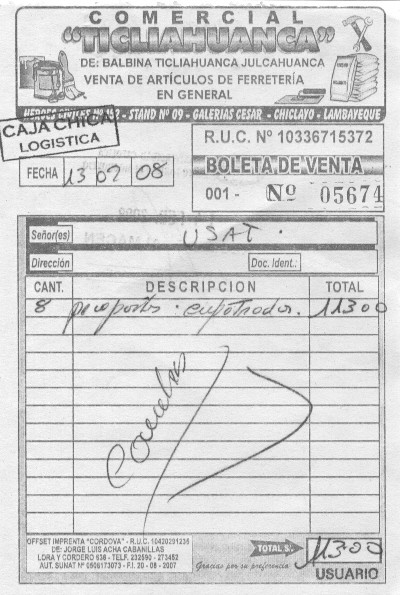 COMERCIAL
"TICLIAHUANCA"
DE: BALBINA TICLIAHUANCA JULCAHUANCA
VENTA DE ARTÍCULOS DE FERRETERÍA
EN GENERAL
HÉROES CIVILES - STAND Nº 09 - GALERIAS CESAR - CHICLAYO - LAMBAYEQUE
CAJA CHICA
LOGISTICA
R.U.C. Nº 10336715372
BOLETA DE VENTA
001 - Nº 05674
FECHA 13 02 08
Señor(es) USAT.
Dirección Doc. Ident.:
CANT. DESCRIPCION TOTAL
8 empotrados. 113.00
OFFSET IMPRENTA "CORDOVA" - R.U.C. 10420291235
DE: JORGE LUIS ACHA CABANILLAS
LORA Y CORDERO 636 - TELF. 232590 - 273452
AUT. SUNAT Nº 0509173073 - F.I. 20 - 08 - 2007
Gracias por su preferencia
TOTAL S/. 113.00
USUARIO